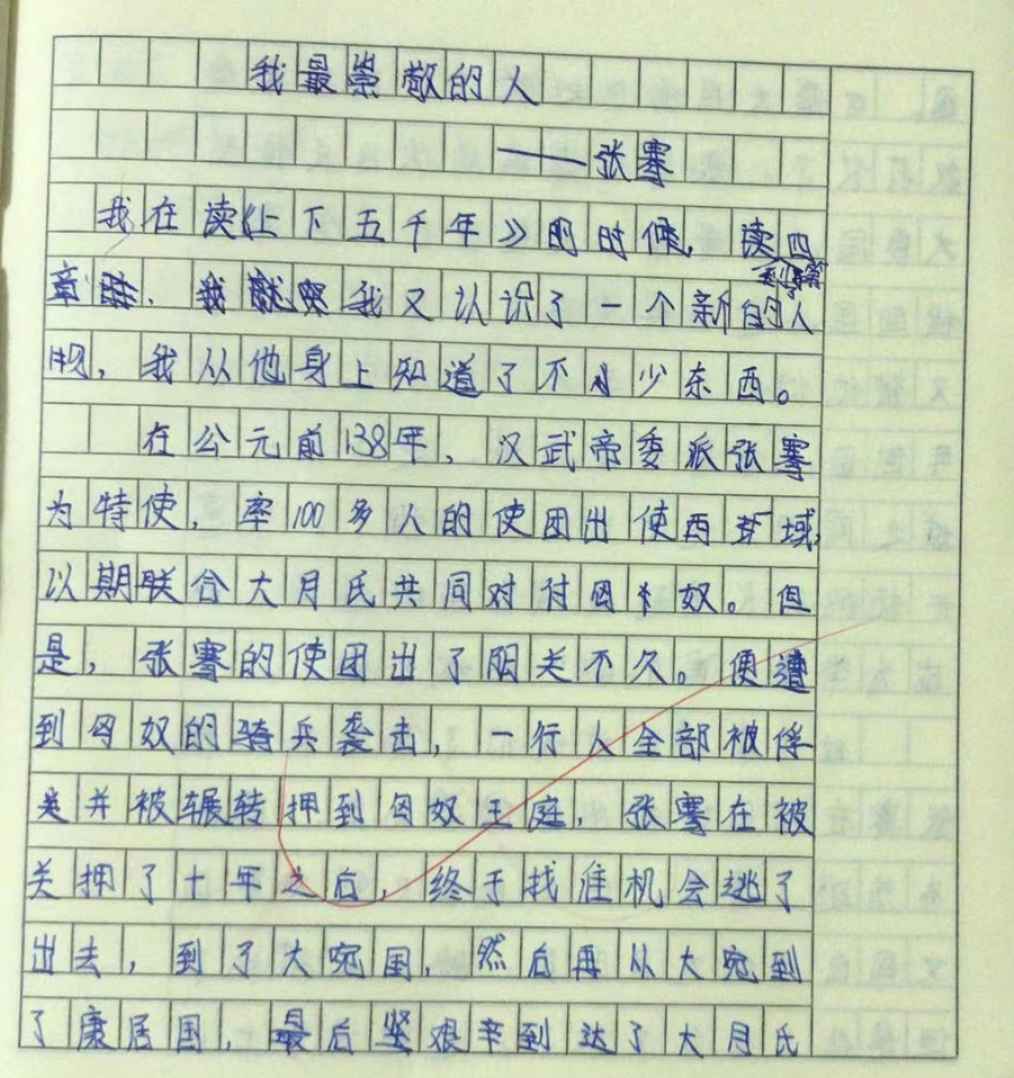 我最崇敬的人
——张骞
我在读《上下五千年》的时候，读四
章 ，我 我又认识了一个新的人
物，我从他身上知道了不少东西。
在公元前138年，汉武帝委派张骞
为特使，率100多人的使团出使西域，
以期联合大月氏共同对付匈奴。但
是，张骞的使团出了阳关不久。便遭
到匈奴的骑兵袭击，一行人全部被俘
并被辗转押到匈奴王庭，张骞在被
关押了十年之后，终于找准机会逃了
出去，到了大宛国，然后再从大宛到
了康居国，最后坚艰辛到达了大月氏